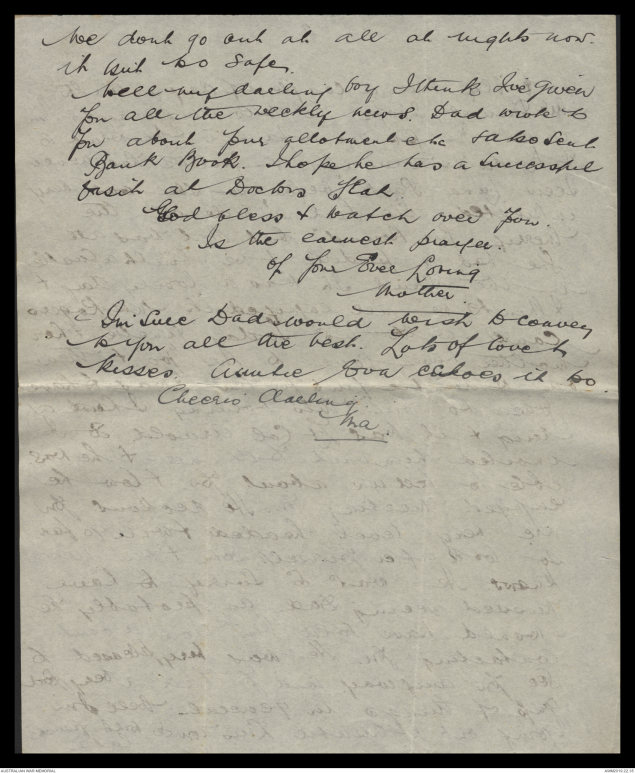 We dont go out at all at nights now.
it isnt so safe.
Well my darling boy I think Ive given
you all the weekly news. Dad wrote to
you about your allotment etc & also sent
Bank Book. I hope he has a successful
visit at Doctors
God bless & watch over you.
Is the earnest prayer.
of your Ever Loving
Mother.
Im sure Dad would wish to convey
to you all the best. Lots of love &
kisses. Auntie Eva echoes it too.
Cheerio darling
Ma.
AUSTRALIAN WAR MEMORIAL